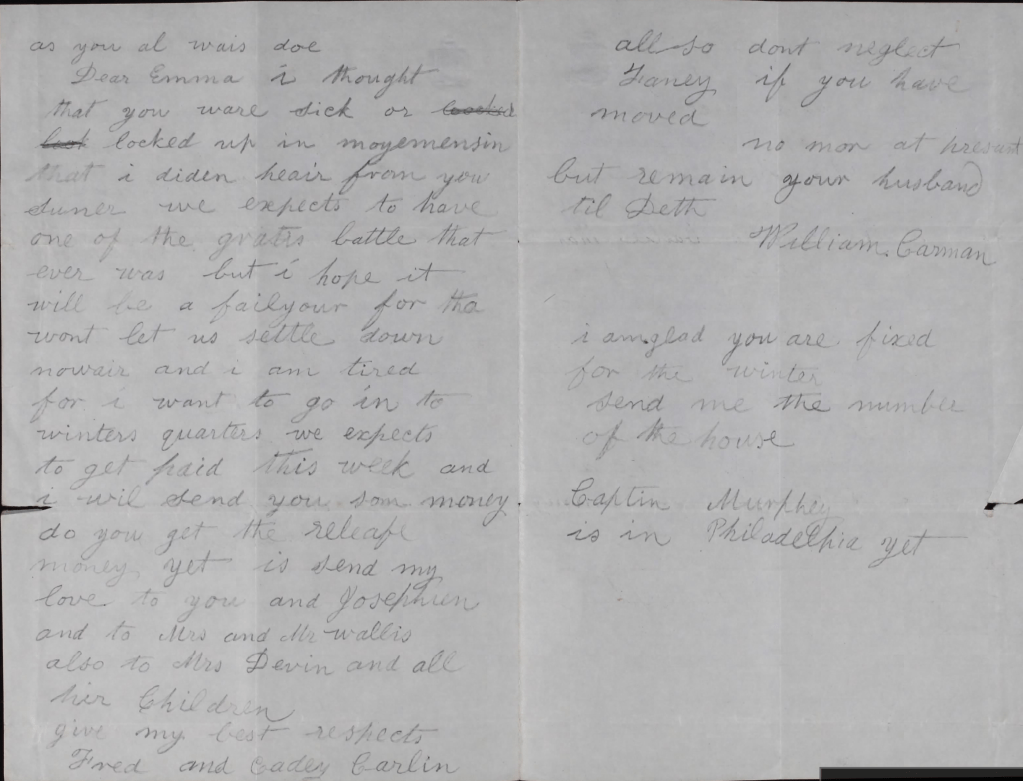 as you al wais doe
Dear Emma i thought
that you ware sick or locked
look locked up in moyemensin
that i diden heair from you
suner we expects to have
one of the grates battle that
ever was but i hope it
will be a failyour for tha
wont let us settle down
nowair and i am tired
for i want to go in to
winters quarters we expects
to get paid this week and
i wil send you som money
do you get the releafe
money yet is send my
love to you and Josephien
and to Mrs and Mr wallis
also to Mrs Devin and all
her Children
give my best respects
Fred and Cadey Carlin
all so dont neglect
Faney if you have
moved
no mor at presant
but remain your husband
til Deth
William Carman
i am glad you are fixed
for the winter
send me the number
of the house
Captin Murphey
is in Philadelphia yet